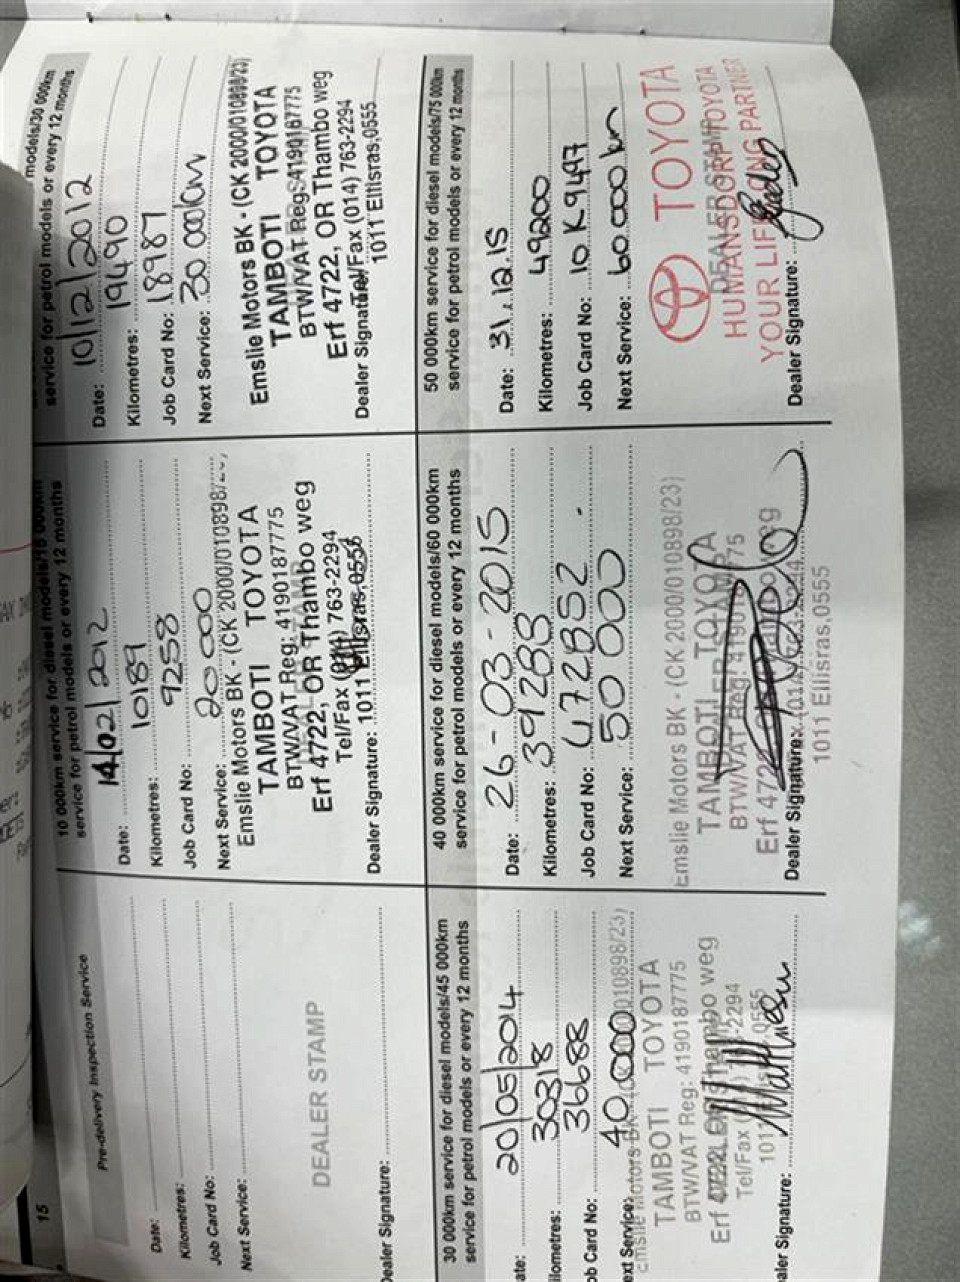 15
Pre-delivery Inspection Service
Date:
Kilometres:
Job Card No:
Next Service:
DEALER STAMP
Dealer Signature:
10 000km service for diesel models/15 000km
service for petrol models or every 12 months
Date: 14/02/2012
Kilometres: 10189
Job Card No: 9258
Next Service: 20 000
Emslie Motors BK - (CK 2000/010898/23)
TAMBOTI TOYOTA
BTW/VAT Reg: 4190187775
Erf 4722, OR Thambo weg
Tel/Fax (014) 763-2294
1011 Ellisras,0555
Dealer Signature:
models/30 000km
service for petrol models or every 12 months
Date: 10/12/2012
Kilometres: 19490
Job Card No: 18987
Next Service: 30 000km
Emslie Motors BK - (CK 2000/010898/23)
TAMBOTI TOYOTA
BTW/VAT Reg: 4190187775
Erf 4722, OR Thambo weg
Tel/Fax (014) 763-2294
1011 Ellisras,0555
Dealer Signature:
30 000km service for diesel models/45 000km
service for petrol models or every 12 months
ate: 20/05/2014
ilometres: 30318
ob Card No: 36688
ext Service: 40 000
Emslie Motors BK - (CK 2000/010898/23)
TAMBOTI TOYOTA
BTW/VAT Reg: 4190187775
Erf 4722, OR Thambo weg
Tel/Fax (014) 763-2294
1011 Ellisras,0555
aler Signature:
40 000km service for diesel models/60 000km
service for petrol models or every 12 months
Date: 26-03-2015
Kilometres: 39288
Job Card No: 472852
Next Service: 50 000
Emslie Motors BK - (CK 2000/010898/23)
TAMBOTI TOYOTA
BTW/VAT Reg: 4190187775
Erf 4722
Dealer Signature:
1011 Ellisras,0555
50 000km service for diesel models/75 000km
service for petrol models or every 12 months
Date: 31.12.15
Kilometres: 49200
Job Card No: 10K9497
Next Service: 60 000 km
TOYOTA
DEALER STAMP
HUMANSDORP TOYOTA
YOUR LIFELONG PARTNER
Dealer Signature: